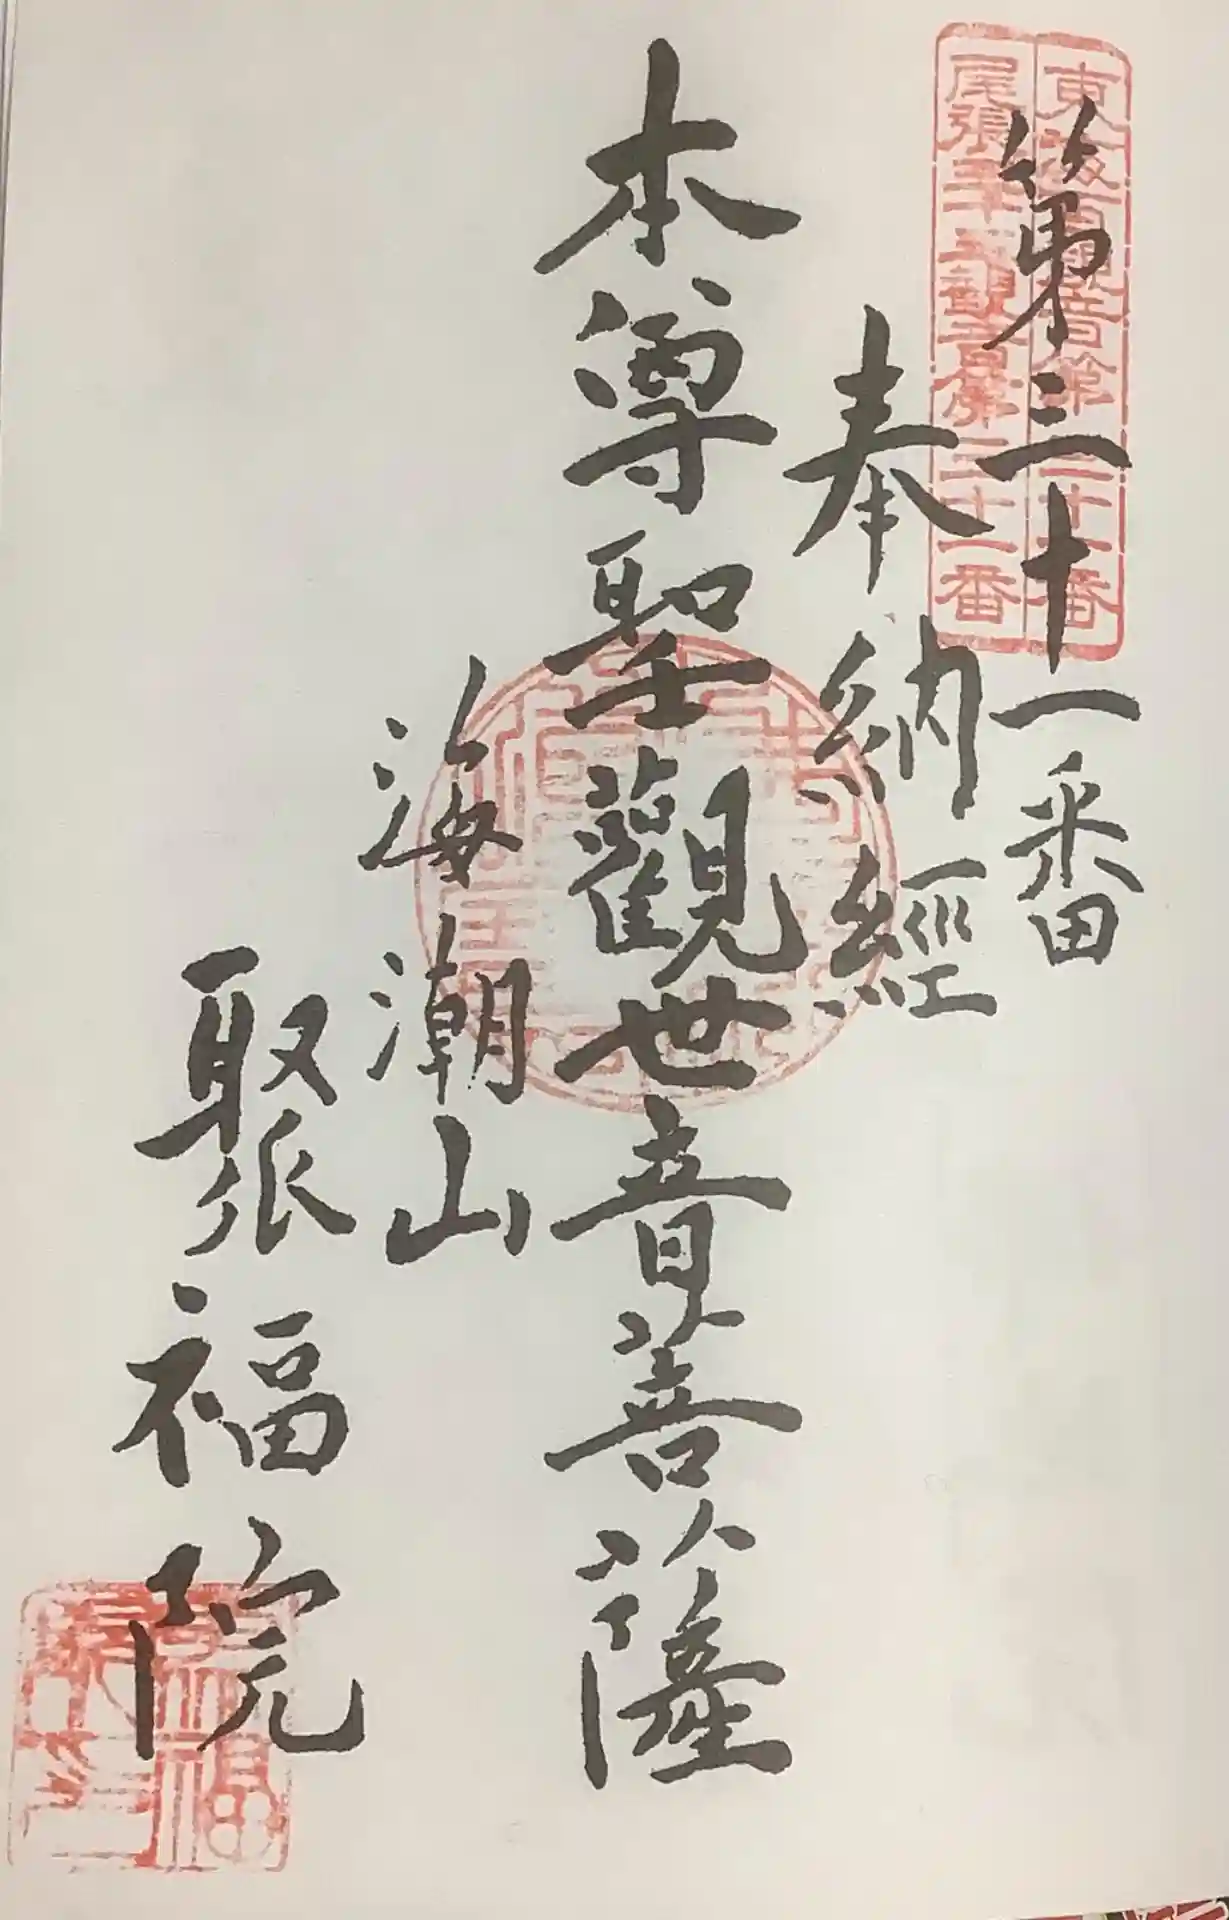 東海百観音第三十一番
尾張三十三観音第三十一番
第三十一番
奉納經
本尊聖觀世音菩薩
海潮山
聚福院